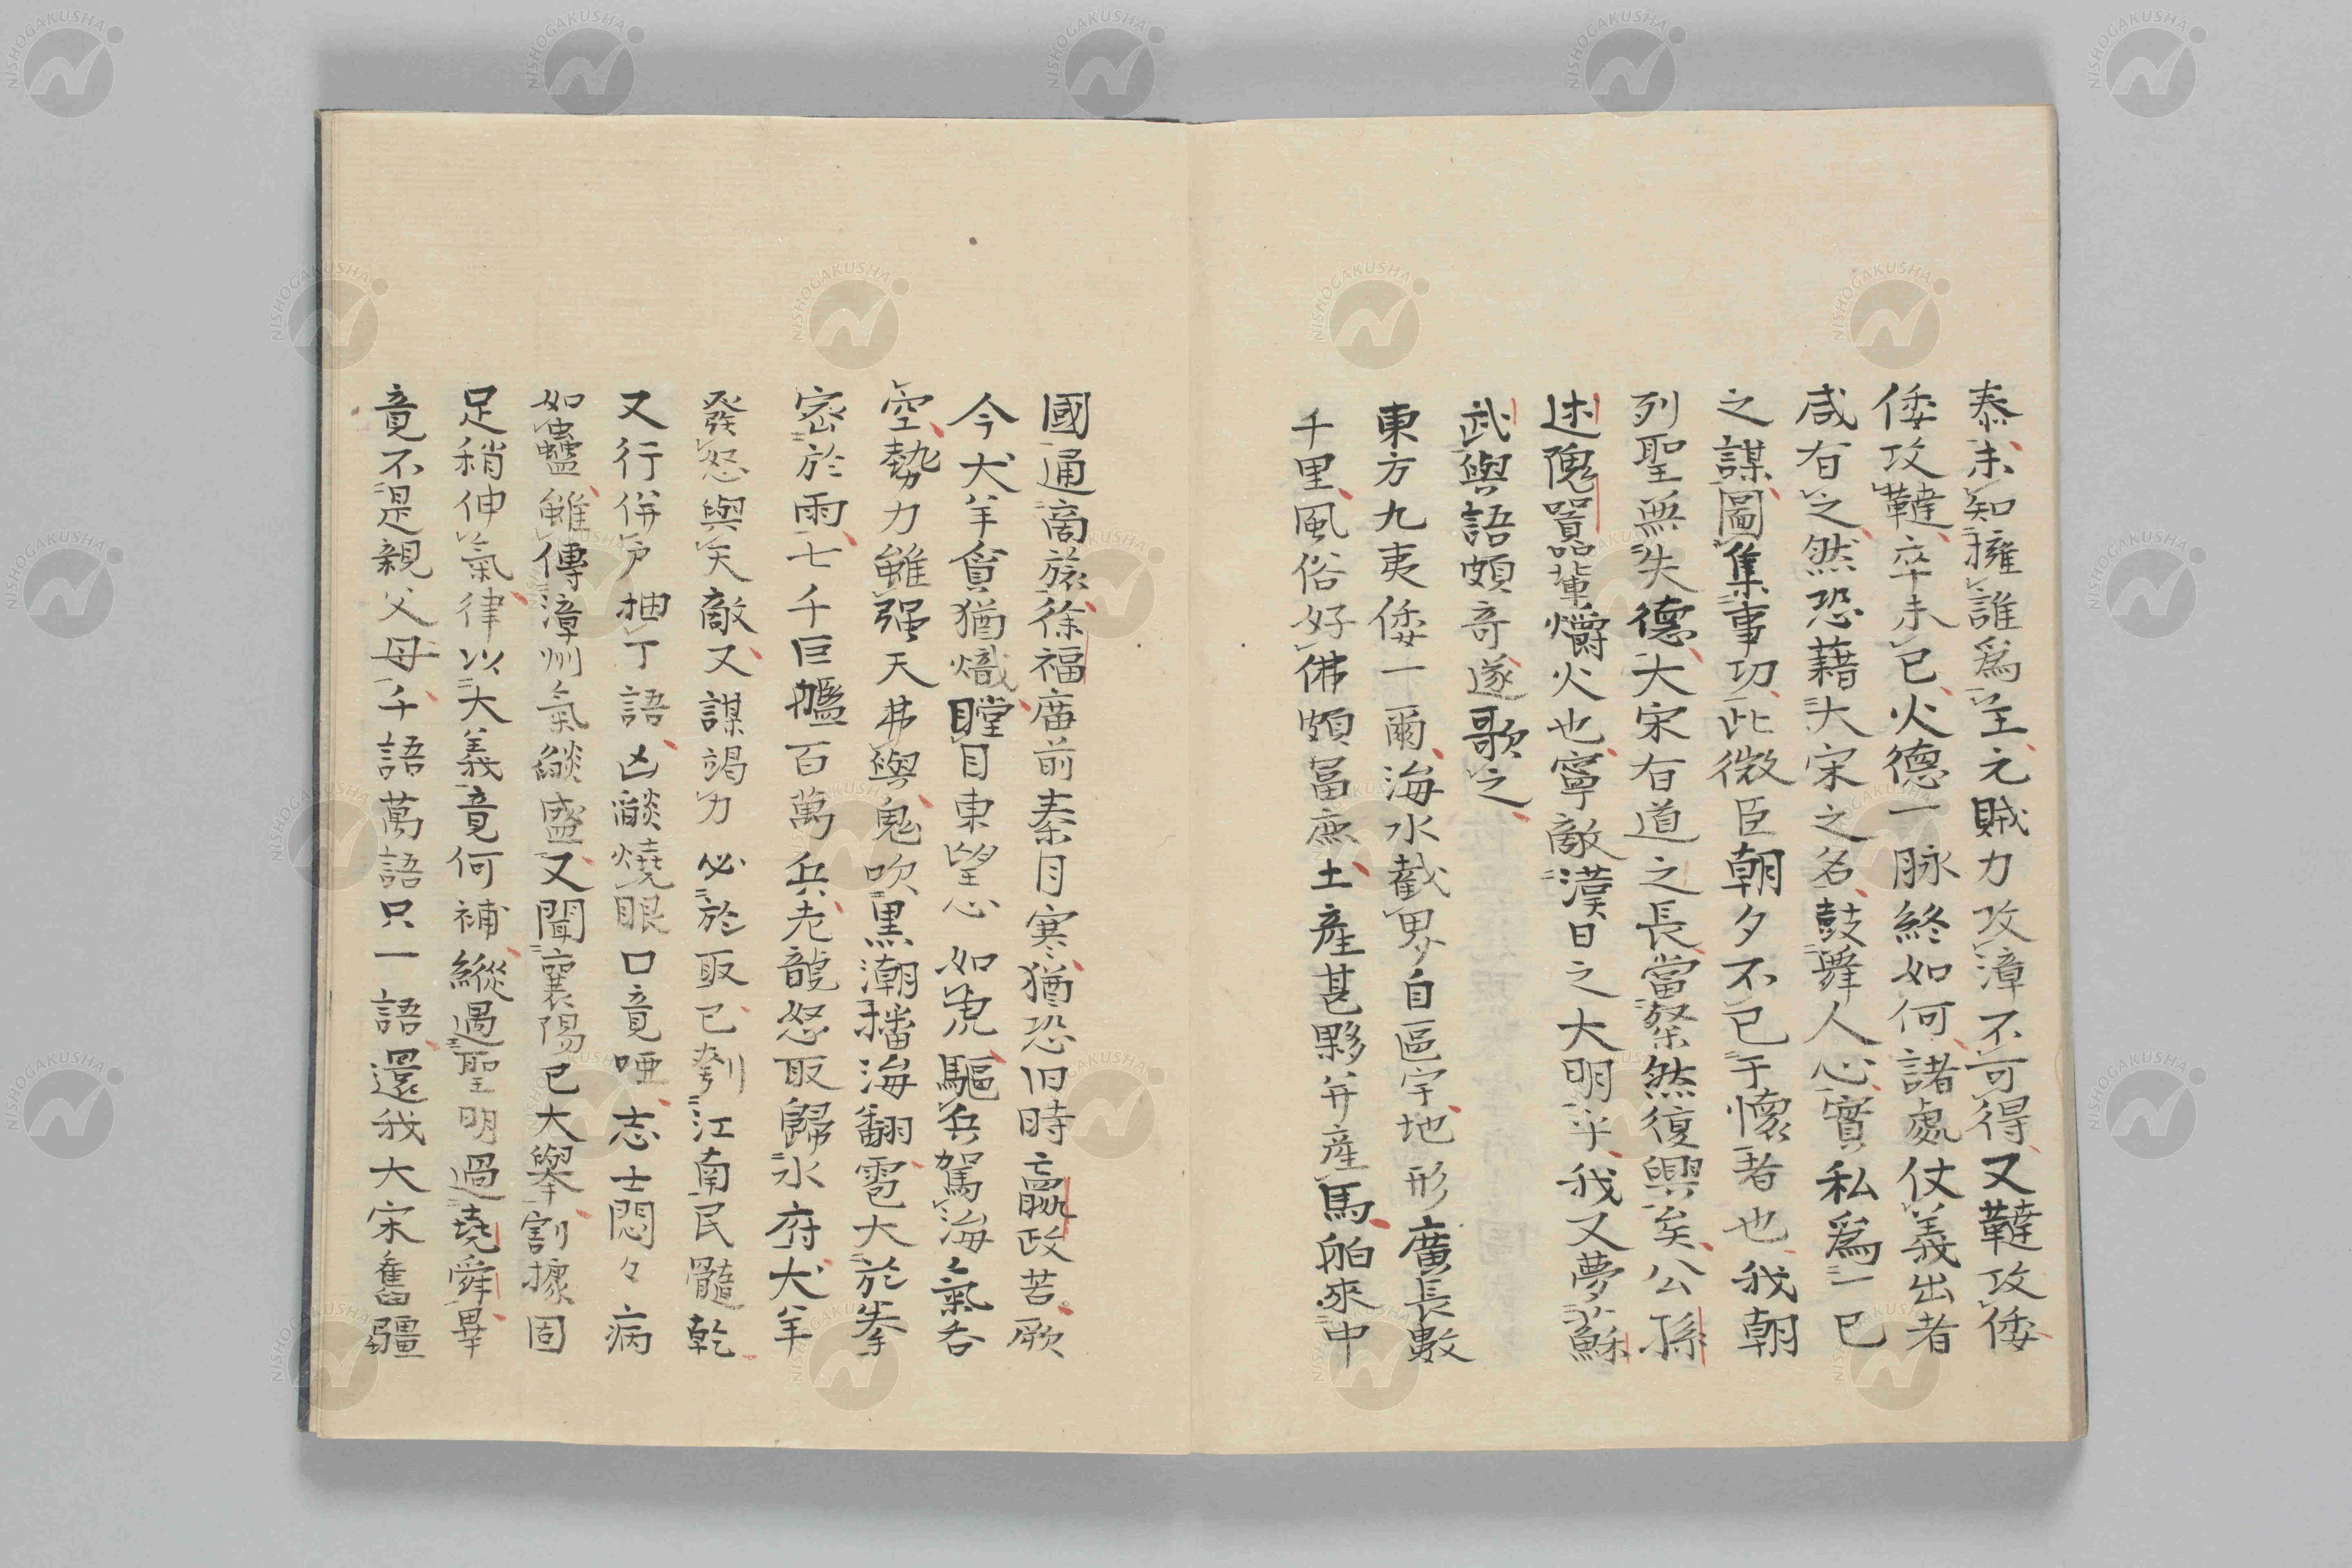 泰未知擁誰爲主元賊力攻漳不可得又韃攻倭
倭攻韃卒未已火德一脉終如何諸處仗義出者
咸有之然恐藉大宋之名鼓舞人心實私爲一已
之謀圖集事功此微臣朝夕不已于懷者也我朝
列聖無失德大宋有道之長當粲然復興矣公孫
述隗囂輩爝火也寧敵漢日之大明乎我又夢蘇
武與語頗奇遂歌之
東方九夷倭一爾海水截界自區宇地形廣長數
千里風俗好佛頗富庶土産甚夥并産馬舶來中
國通商旅徐福廟前秦月寒猶恐旧時嬴政苦厥
今犬羊貪猶熾瞠目東望心如虎驅兵駕海氣吞
空勢力雖强天弗與鬼吹黒潮播海翻雹大於拳
密於雨七千巨艦百萬兵老龍怒取歸水府犬羊
發怒與天敵又謀竭力必於取已刳江南民髓乾
又行併戶抽丁語凶燄燒眼口竟唖志士悶々病
如蠱雖傳漳州氣燄盛又聞襄陽已大擧割據固
足稍伸氣律以大義竟何補縱遇聖明過堯舜畢
竟不是親父母千語萬語只一語還我大宋舊疆